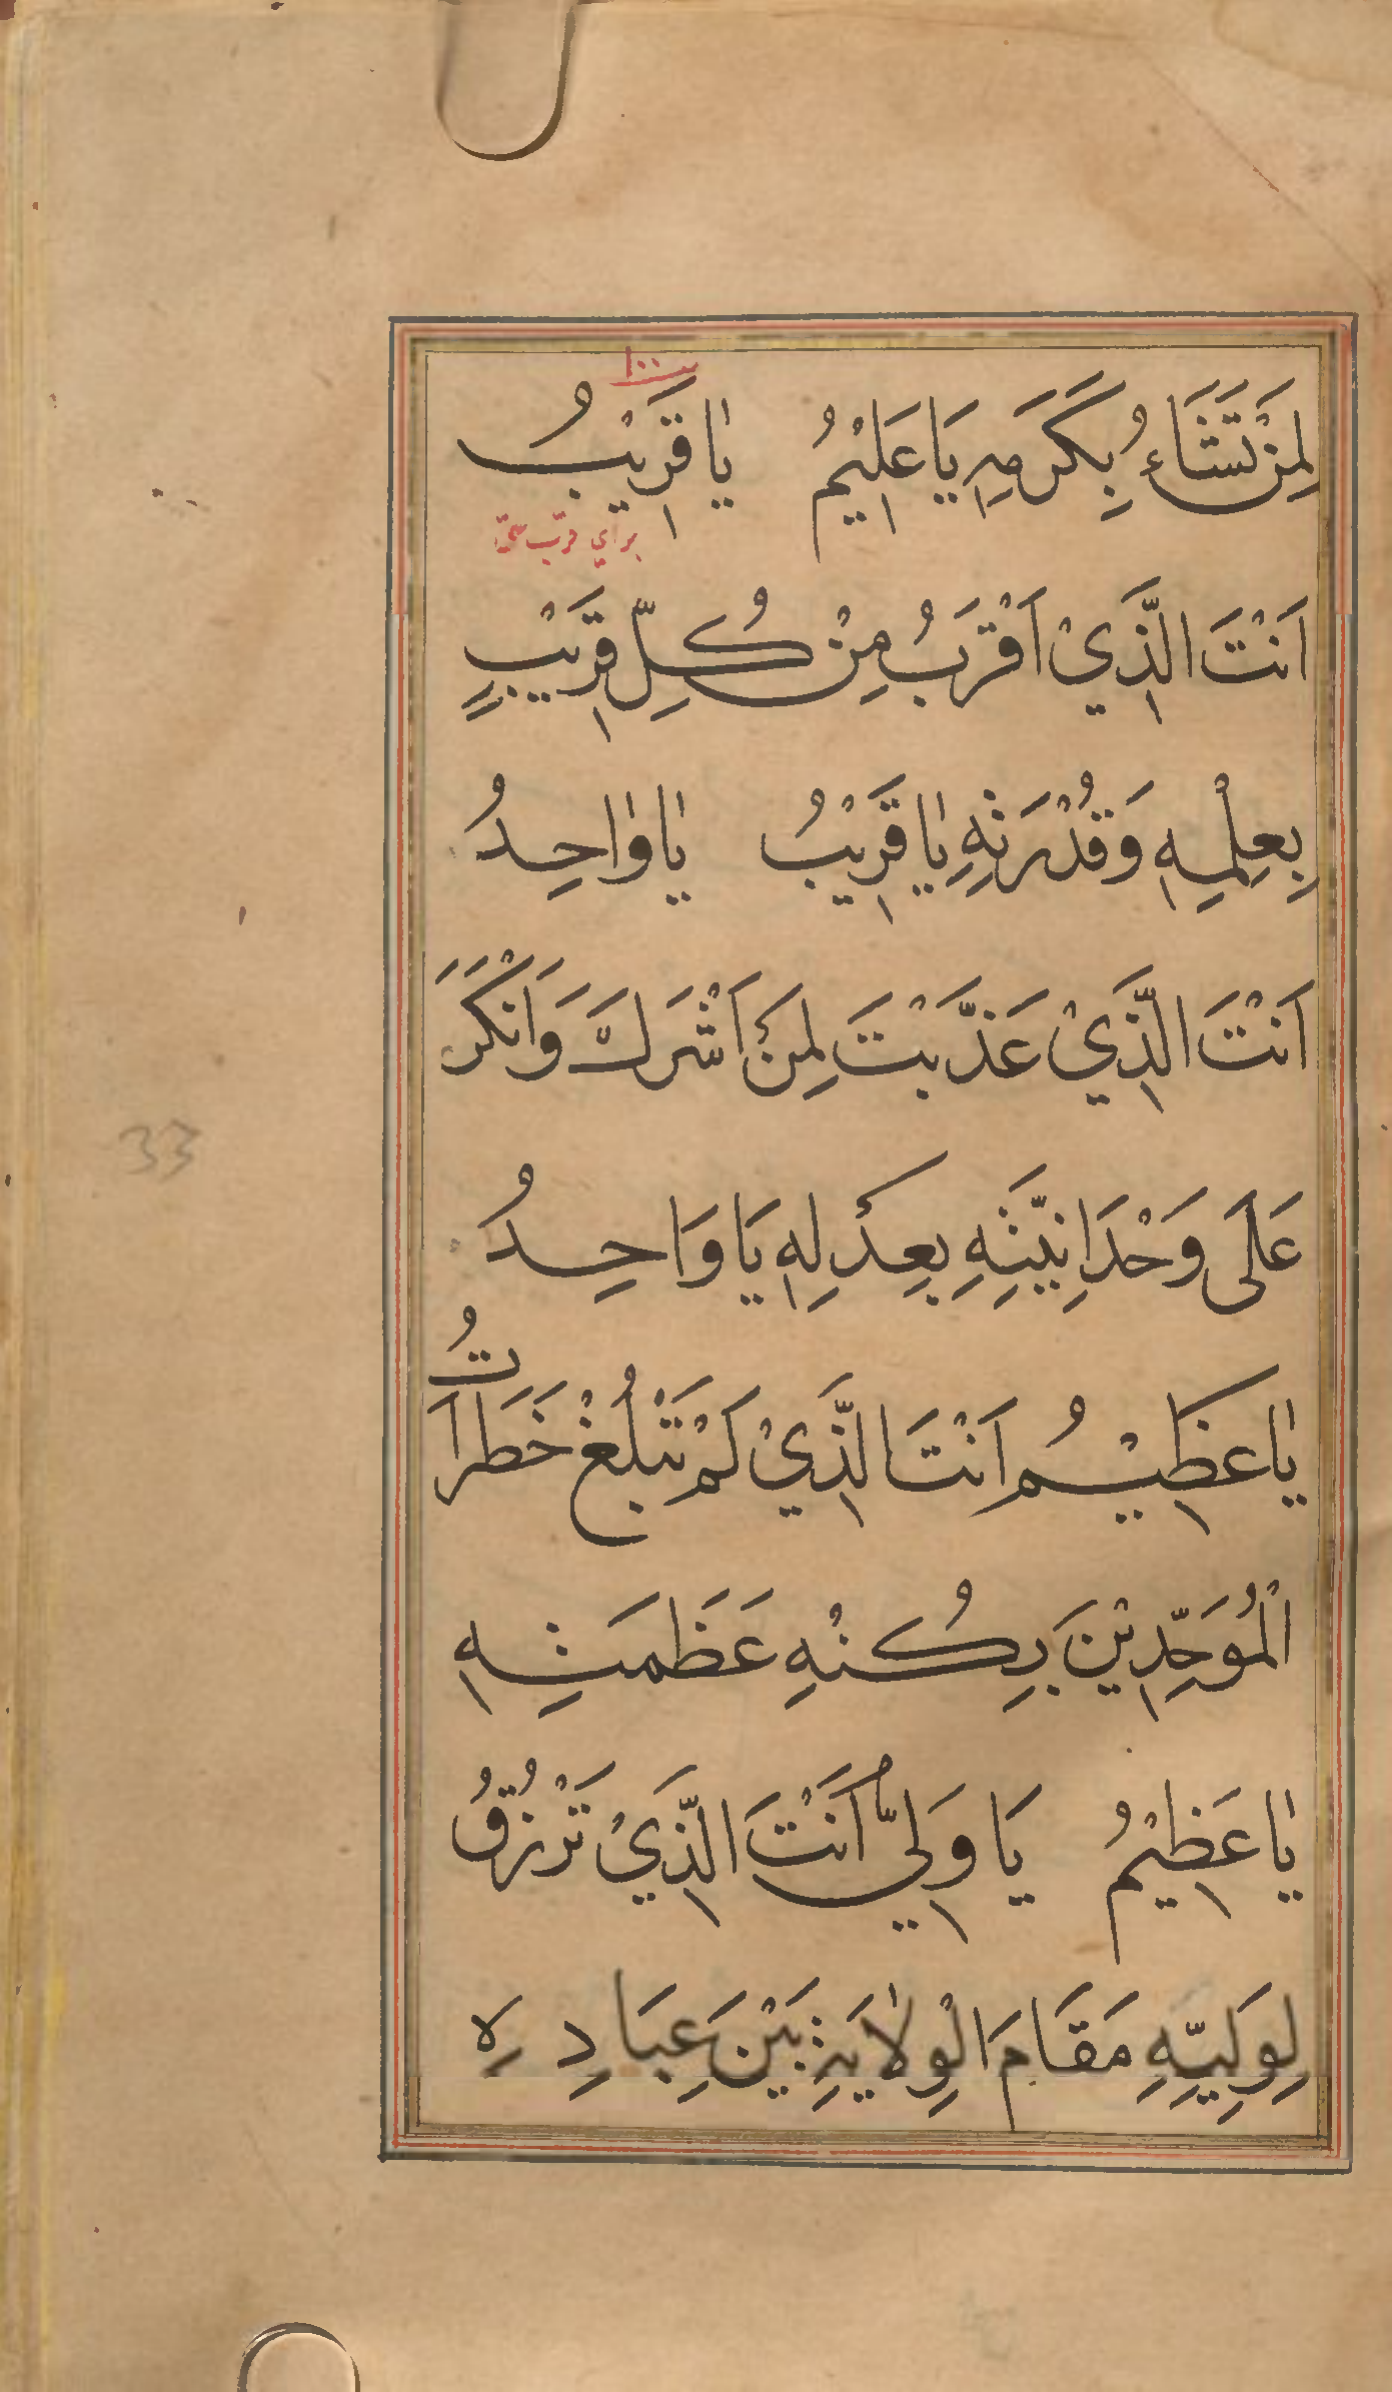 ١٠٠
لِمَنْ تَشَاءُ بِكَرَمِهِ يَا عَلِيْمُ يَا قَرِيْبُ
براي قرب حق
اَنْتَ الَّذِيْ اَقْرَبُ مِنْ كُلِّ قَرِيْبٍ
بِعِلْمِهِ وَقُدْرَتِهِ يَا قَرِيْبُ يَا وَاحِدُ
اَنْتَ الَّذِيْ عَذَّبْتَ لِمَنْ اَشْرَكَ وَاَنْكَرَ
33
عَلَى وَحْدَانِيَّتِهِ بِعَدْلِهِ يَا وَاحِدُ
يَا عَظِيْمُ اَنْتَ الَّذِيْ لَمْ تَبْلُغْ خَطَرَاتُ
الْمُوَحِّدِيْنَ بِكُنْهِ عَظَمَتِهِ
يَا عَظِيْمُ يَا وَلِيُّ اَنْتَ الَّذِيْ تَرْزُقُ
لِوَلِيِّهِ مَقَامَ الْوِلَايَةِ بَيْنَ عِبَادِهِ